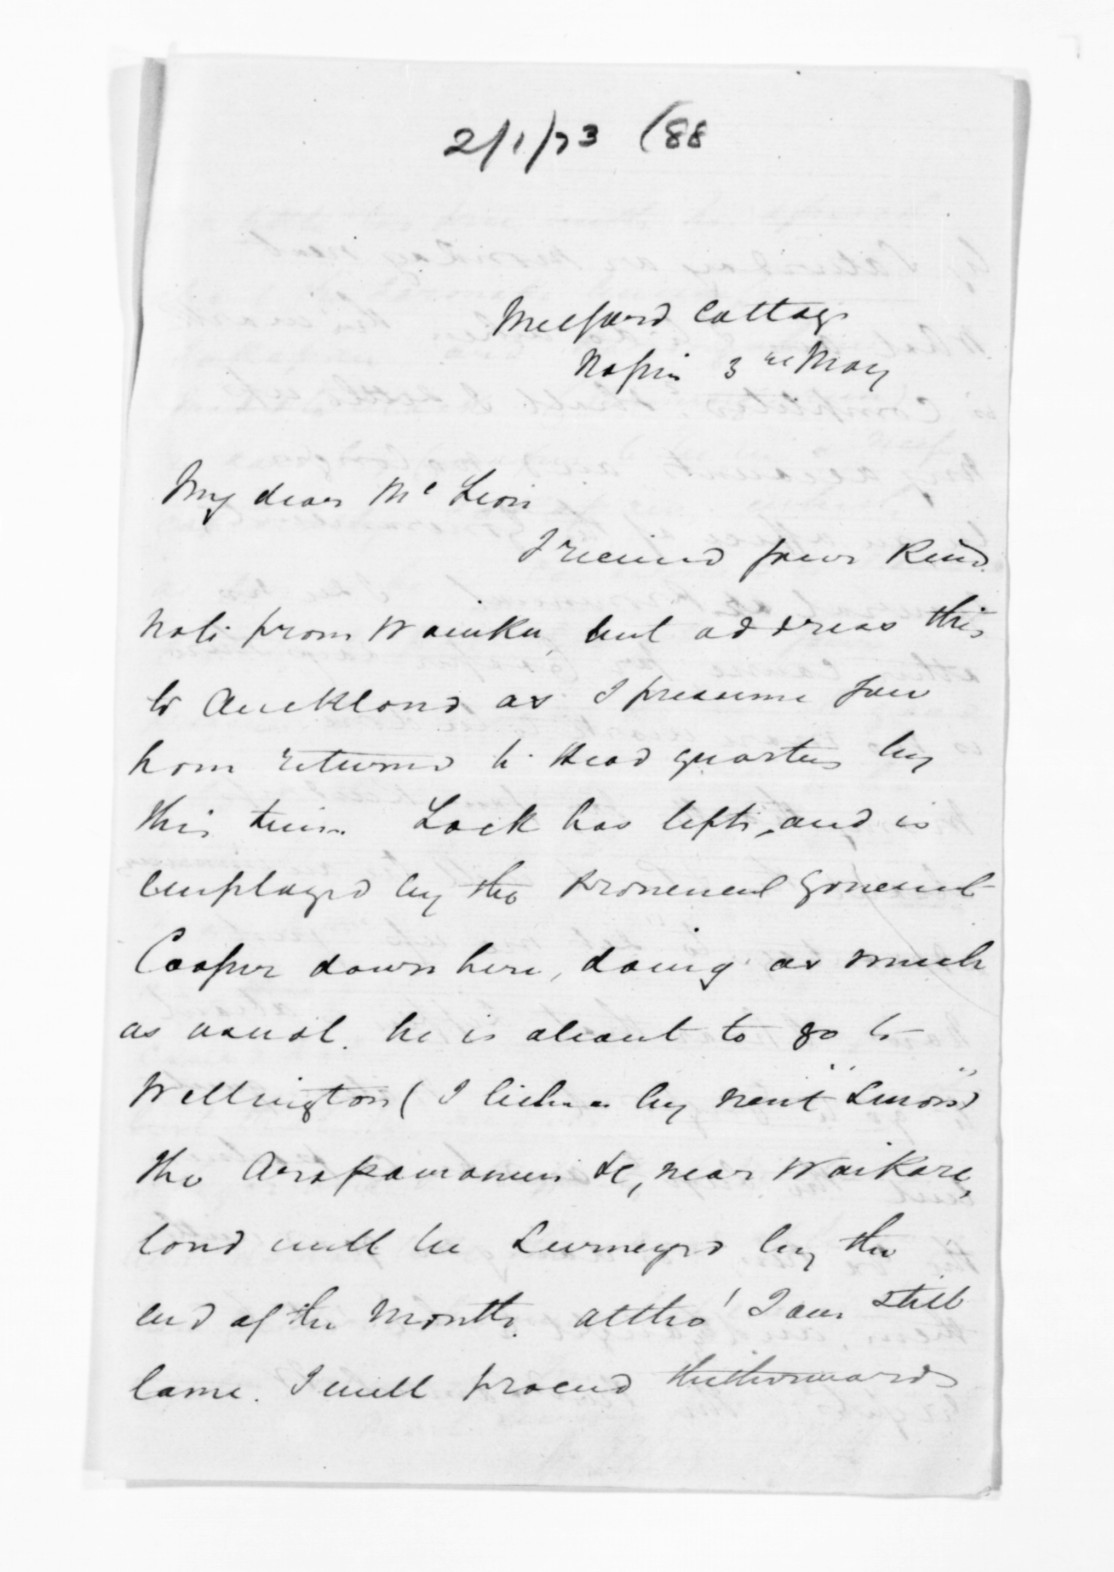 2/1/73 (88
Milford Cottage
Napier 3rd May
My dear McLean
I received your kind
note from Waiuku, but address this
to Auckland as I presume you
have returned to Head quarters by
this time. Lock has left, and is
employed by the Provincial Government
Cooper down here, doing as much
as usual. he is about to go to
Wellington (I believe by next "Luna")
the Arapawanui &c, near Waikare,
land will be Surveyed by the
end of the Month. altho' I am still
lame. I will proceed thitherwards